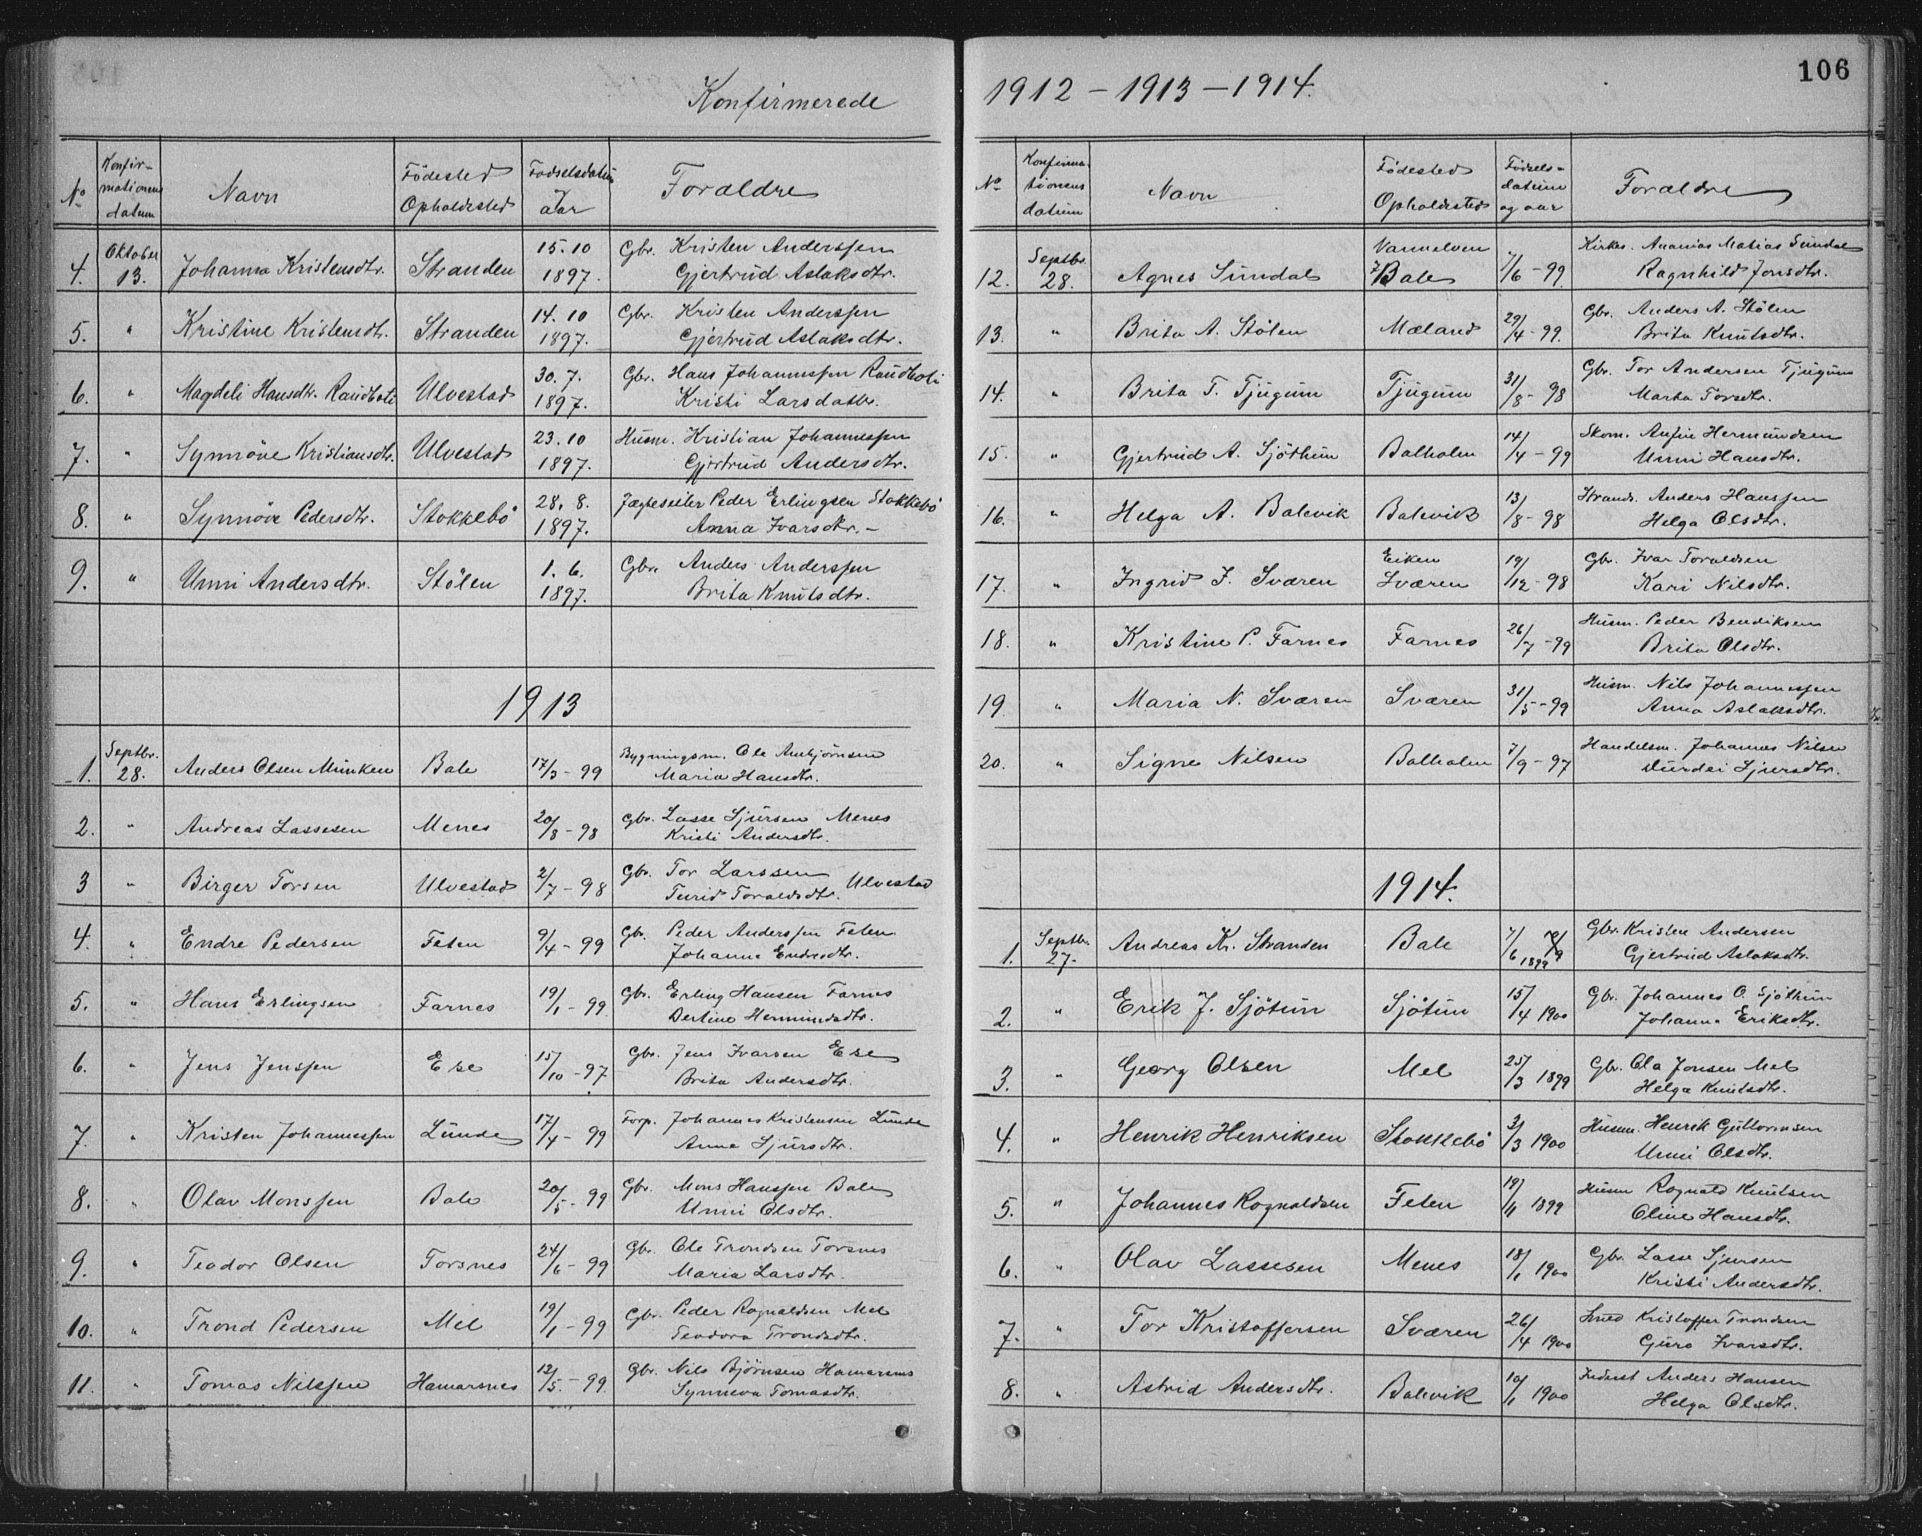 106
Konfirmerede
1912 - 1913 - 1914.
No Konfirmationens datum Navn Fødested Opholdested Fødselsdatum og aar Foraldre
4. Oktober 13. Johanna Kristensdtr. Stranden 15.10 1897. Gbr. Kristen Anderssen
Gjertrud Aslaksdtr.
5. " Kristine Kristensdtr. Stranden 14.10 1897. Gbr. Kristen Anderssen
Gjertrud Aslaksdtr.
6. " Magdeli Hansdtr. Ulvestad 30.7. 1897. Gbr. Hans Johannessen
Kristi Larsdatter.
7. " Synnøve Kristiansdtr. Ulvestad 23.10 1897. Husm. Kristian Johannessen
Gjertrud Andersdtr.
8. " Synnøve Pedersdtr. Stokkebø 28.8. 1897. Jægteseiler Peder Erlingsen Stokkebø
Anna Ivarsdtr. -
9. " Unni Andersdtr. Stølen 1.6. 1897. Gbr. Anders Anderssen
Brita Knutsdtr.
1913
1. Septbr. 28. Anders Olsen Munken Bale 17/3-99 Bygningsm. Ole Ambjørnsen
Maria Hansdtr.
2. " Andreas Lassesen Menes 20/8-98 Gbr. Lasse Sjursen Menes
Kristi Andersdtr.
3 " Birger Torsen Ulvestad 2/7-98 Gbr. Tor Larssen Ulvestad
Turid Toraldsdtr.
4. " Endre Pedersen Feten 9/4-99 Gbr. Peder Anderssen Feten
Johanna Endresdtr.
5. " Hans Erlingsen Farnes 19/1-99 Gbr. Erling Hansen Farnes
Dertine Hermundsdtr.
6. " Jens Jenssen Ese 15/10-97 Gbr. Jens Ivarsen Ese
Brita Andersdtr.
7. " Kristen Johannessen Lunde 17/4-99 Forp. Johannes Kristensen Lunde
Anna Sjursdtr.
8. " Olav Monssen Bale 20/5-99 Gbr. Mons Hanssen Bale
Unni Olsdtr.
9. " Teodor Olsen Torsnes 24/6-99 Gbr. Ole Trondsen Torsnes
Maria Larsdtr.
10. " Trond Pedersen Mel 19/1-99 Gbr. Peder Rognaldsen Mel
Teodora Trondsdtr.
11. " Tomas Nilssen Hamarsnes 12/5-99 Gbr. Nils Bjørnsen Hamarsnes
Synneva Tomasdtr.
No Konfirmationens datum Navn Fødested Opholdested Fødselsdatum og aar Foraldre
12. Septbr. 28. Agnes Sundal Vannelven Bale 7/6-99 Kirkes. Ananias Matias Sundal
Ragnhild Jonsdtr.
13. " Brita A. Stølen Mæland 29/4-99. Gbr. Anders A. Stølen
Brita Knutsdtr.
14. " Brita T. Tjugum Tjugum 31/8-98 Gbr. Tor Andersen Tjugum
Marta Torsdtr.
15. " Gjertrud A. Sjøthun Balholm 14/4-99 Skom. Anfin Hermundsen
Unni Hansdtr.
16. " Helga A. Balevik Balevik 13/8-98 Strands. Anders Hanssen
Helga Olsdtr.
17. " Ingrid I. Sværen Eiken Sværen 19/12-98 Gbr. Ivar Toraldsen
Kari Nilsdtr.
18. " Kristine P. Farnes Farnes 26/7-99 Husm. Peder Bendiksen
Brita Olsdtr.
19. " Maria N. Sværen Sværen 31/5-99 Husm. Nils Johannessen
Anna Aslaksdtr.
20. " Signe Nilsen Balholm 7/9-97 Handelsm. Johannes Nilsen
Durdei Sjursdtr.
1914.
1. Septbr. 27. Andreas Kr. Stranden Bale 7/6 1899 Gbr. Kristen Andersen
Gjertrud Aslaksdtr.
2. " Erik J. Sjøtun Sjøtun 15/4 1900 Gbr. Johannes O. Sjøthun
Johanna Eriksdtr.
3. " Georg Olsen Mel 25/3 1899 Gbr. Ola Jonsen Mel
Helga Knutsdtr.
4. " Henrik Henriksen Stokkebø 3/3 1900 Husm. Henrik Guttormsen
Unni Olsdtr.
5. " Johannes Rognaldsen Feten 19/1 1899 Husm Rognald Knutsen
Oline Hansdtr.
6. " Olav Lassesen Menes 18/1 1900 Gbr. Lasse Sjursen
Kristi Andersdtr.
7. " Tor Kristoffersen Sværen 26/4 1900 Smed Kristoffer Trondsen
Guro Ivarsdtr.
8. " Astrid Andersdtr. Balevik 10/1 1900 Anders Hansen
Helga Olsdtr.